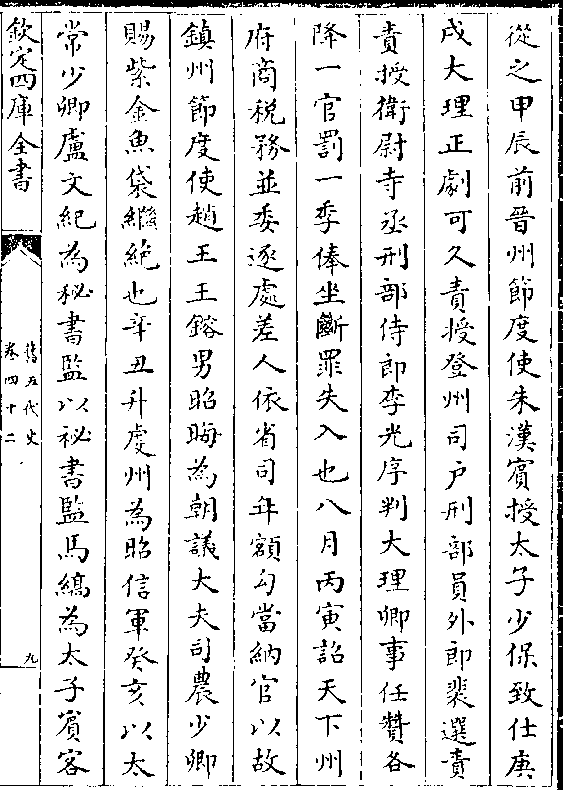 從之甲辰前晉州節度使朱漢賓授太子少保致仕庚
戌大理正劇可久責授登州司户刑部員外郎裴選責
責授衛尉寺丞刑部侍郎李光序判大理卿事任贊各
降一官罰一季俸坐斷罪失入也八月丙寅詔天下州
府商税務並委逐處差人依省司年額勾當納官以故
鎮州節度使趙王王鎔男昭誨為朝議大夫司農少卿
賜紫金魚袋繼絶也辛丑升虔州為昭信軍癸亥以太
常少卿盧文紀為秘書監以秘書監馬縞為太子賓客
欽定四庫全書
舊五代史
卷四十二
九